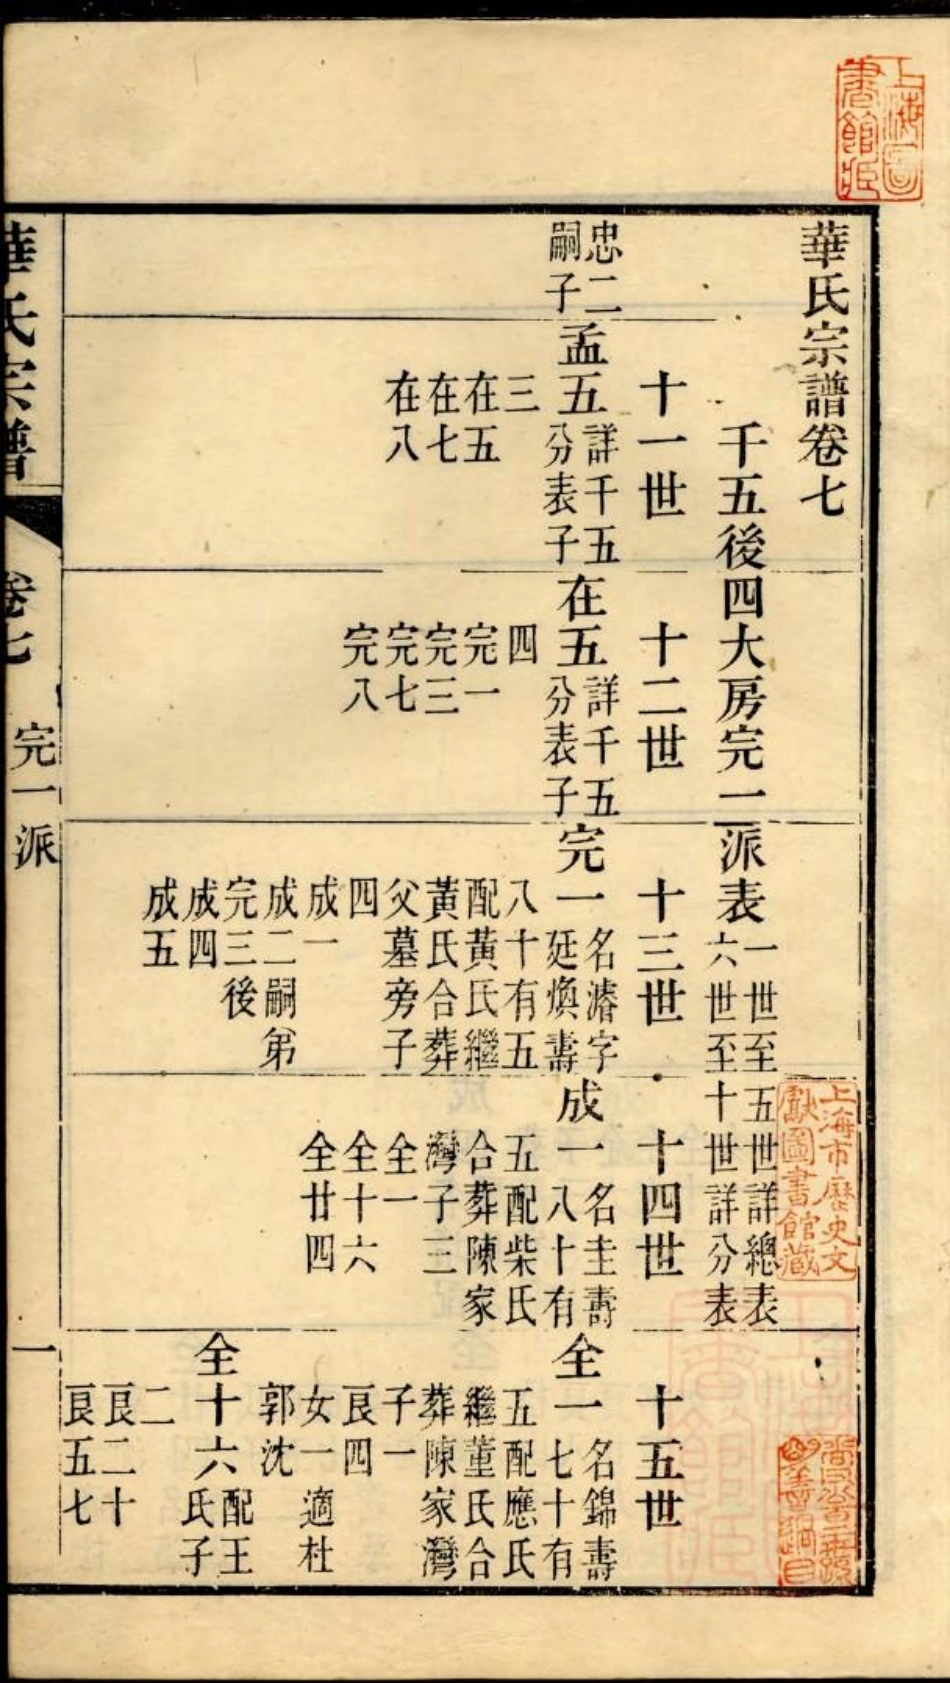 上海圖
書館藏
華氏宗譜卷七
千五後四大房完一派表
一世至五世詳總表
六世至十世詳分表
十一世
十二世
十三世
十四世
十五世
忠二
嗣子
孟五
詳千五
分表子
三
在五
在七
在八
在五
詳千五
分表子
四
完一
完三
完七
完八
完一
名濬字
延煥壽
八十有五
配黃氏繼
黃氏合葬
父墓旁子
四
成一
成二嗣第
完三後
成四
成五
成一
名圭壽
八十有
五配柴氏
合葬陳家
灣子三
全一
全十六
全廿四
全一
名錦壽
七十有
五配應氏
繼董氏合
葬陳家灣
子一
艮四
女一適杜
郭沈
全十六
配王
氏子
二
艮二十
艮五七
華氏宗譜
卷七
完一派
一
上海市歷史文
獻圖書館藏